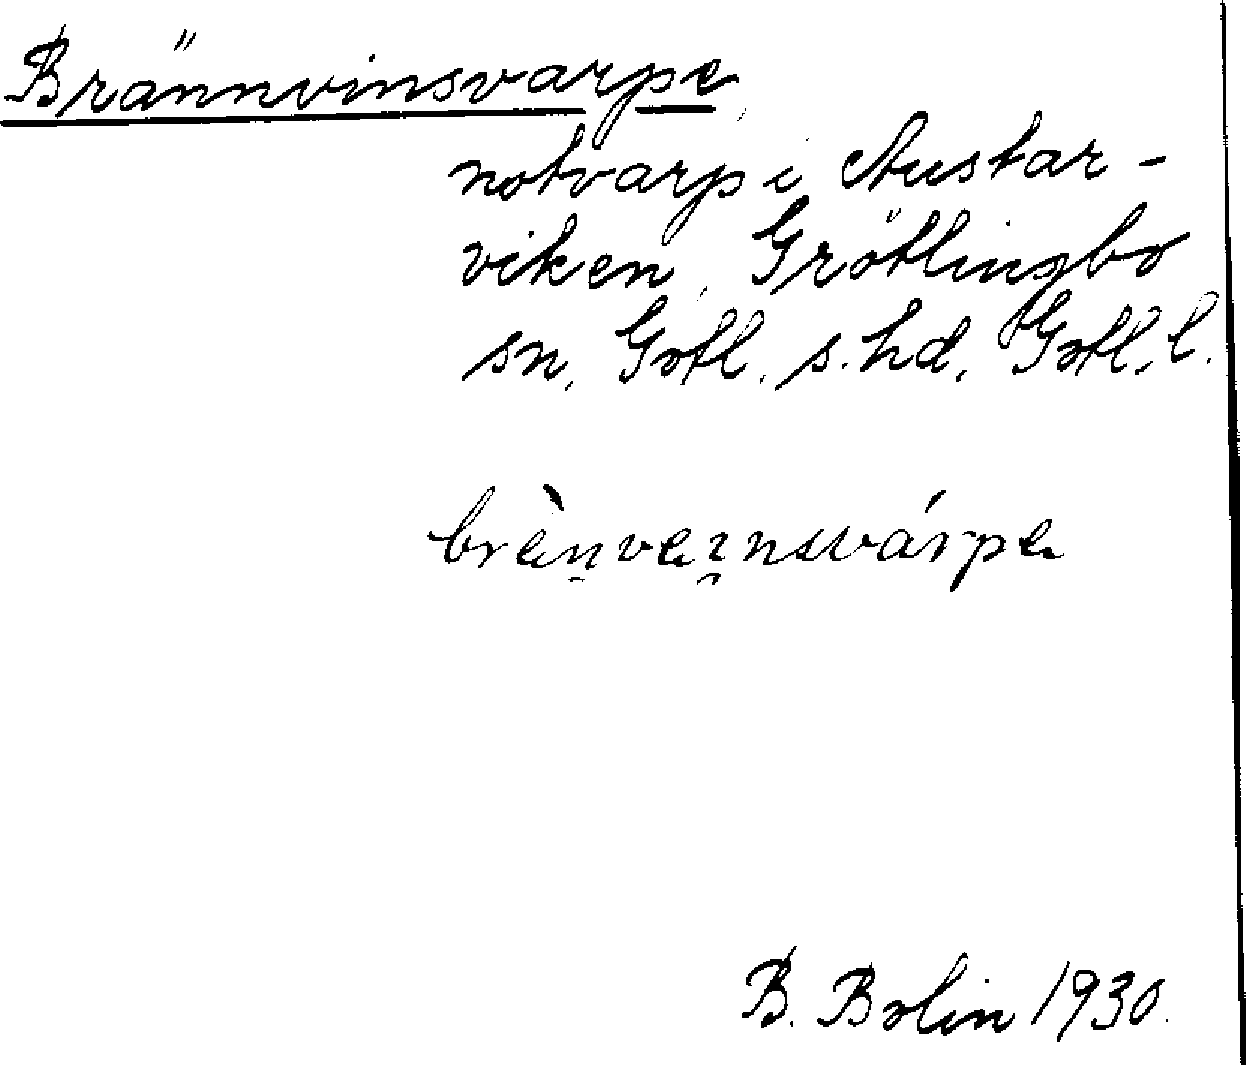 Brännvinsvarpe
notvarp i Austar-
viken, Grötlingbo
sn, Gotl. s. hd, Gotl. l.
brèn̯veɪ̯nsvárpe
B. Bolin 1930.